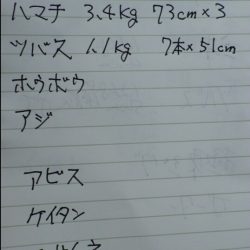 ハマチ 3.4kg 73cm×3
ツバス 1.1kg 7本×51cm
ホウボウ
アジ
アビス
ケイタン